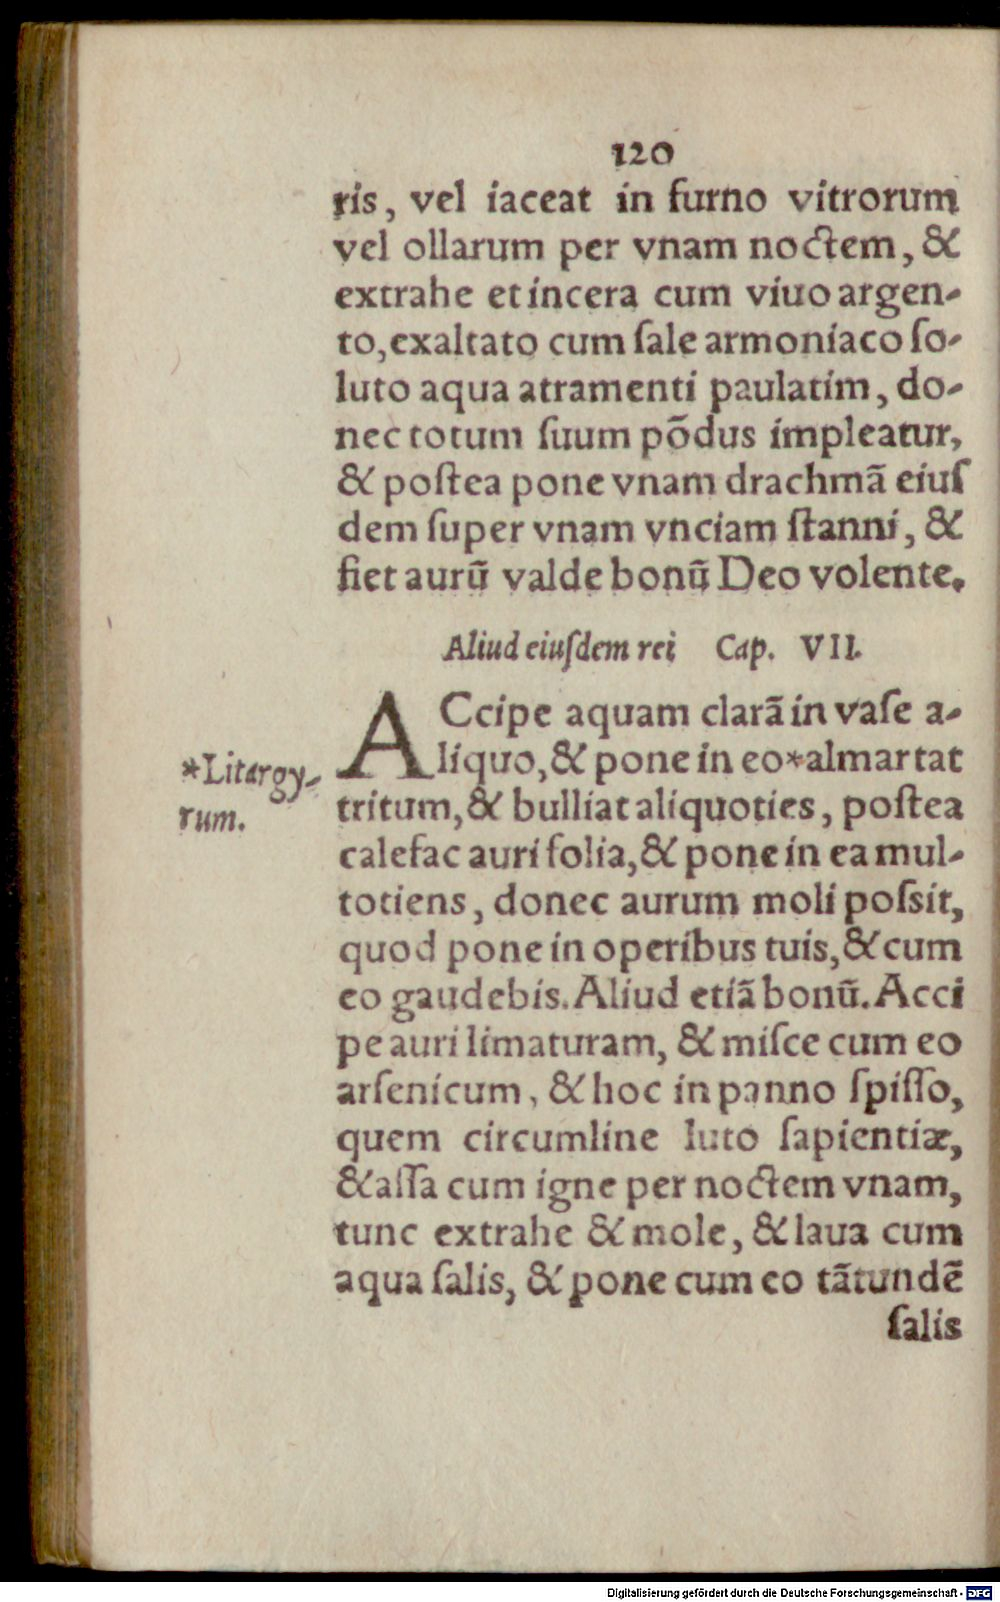 120
ris, vel iaceat in furno vitrorum
vel ollarum per vnam noctem, &
extrahe et incera cum viuo argen-
to, exaltato cum ſale armoniaco ſo-
luto aqua atramenti paulatim, do-
nec totum ſuum põdus impleatur,
& poſtea pone vnam drachmã eiuſ
dem ſuper vnam vnciam ſtanni, &
fiet aurũ valde bonũ Deo volente.
Aliud eiuſdem rei Cap. VII.
ACcipe aquam clarã in vaſe a-
liquo, & pone in eo *almartat
*Litargy-
rum.
tritum, & bulliat aliquoties, poſtea
calefac auri folia, & pone in ea mul-
totiens, donec aurum moli poſsit,
quod pone in operibus tuis, & cum
eo gaudebis. Aliud etiã bonũ. Acci
pe auri limaturam, & miſce cum eo
arſenicum, & hoc in panno ſpiſſo,
quem circumline luto ſapientiæ,
& aſſa cum igne per noctem vnam,
tunc extrahe & mole, & laua cum
aqua ſalis, & pone cum eo tãtundẽ
ſalis
Digitalisierung gefördert durch die Deutsche Forschungsgemeinschaft - DFG